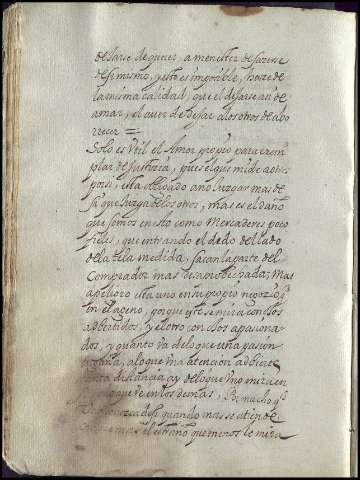 dejarse de querer, a menester desasirse
de si mismo, y esto es imposible, no es de
la misma calidad, que el dejarse an de
amar, el aver de dejar a los otros de abo
rrecer =
Solo es Vtil el Amor propio para exem
plar de Justizia, pues el que mide a otros
por si, esta obligado a no Juzgar mas de
sà que Juzga de los otros, mas es el daño
que somos en esto como Mercaderes poco
fieles, que entrando el dedo del lado
de la tela medida, sacan la parte del
Comprador mas desaprobechada; Mas
a peligro esta uno en su propio negozio q̃
en el ageno, porque este se mira con ojos
adbertidos, y el otro con ojos apasiona
dos, y quanto va de lo que una pasion
a lo que vna atencion adbierte
distancia ay de lo que vno mira en
que ve en los demas, Por mucho q̃
conozca de si quando mas se atiende
mas el estraño que menos le mira